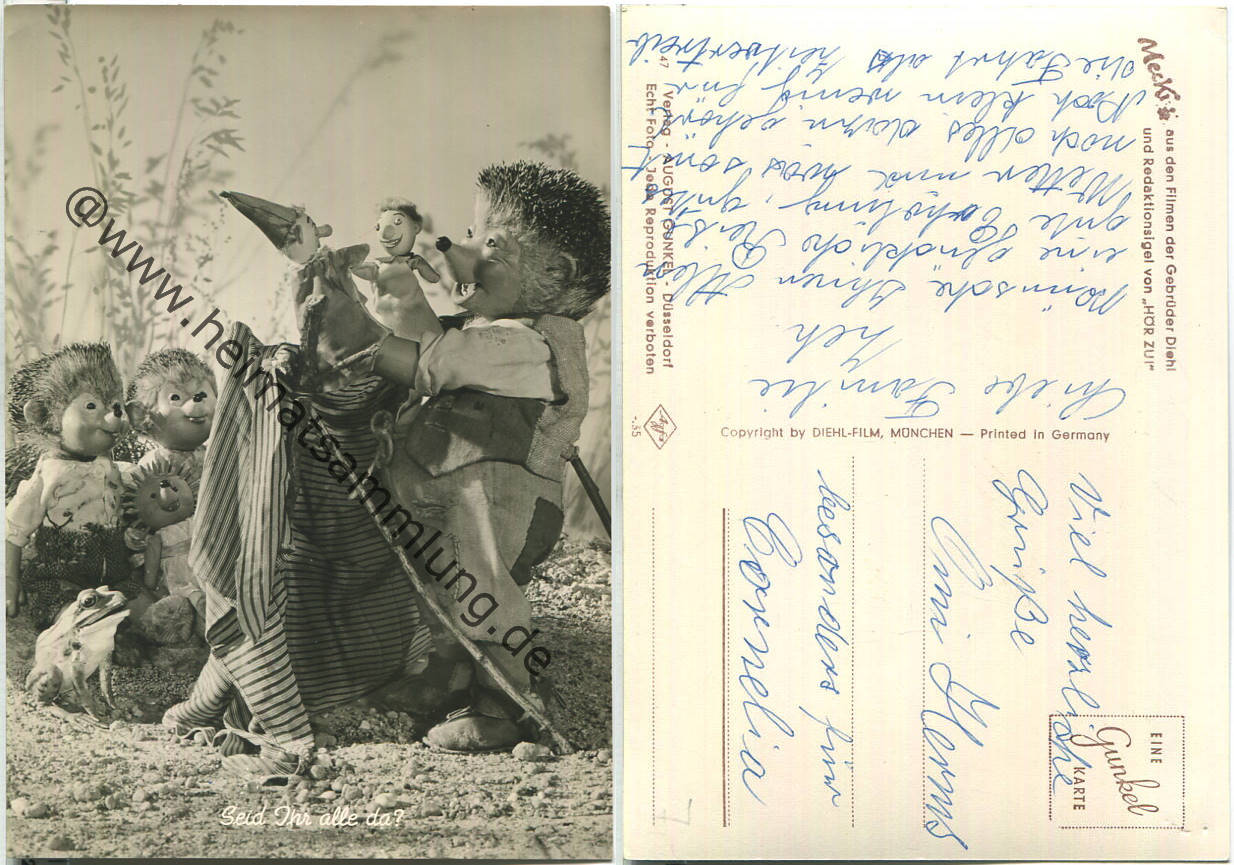 @www.heimatsammlung.de
Seid Ihr alle da?
Mecki
aus den Filmen der Gebrüder Diehl
und Redaktionsigel von „HÖR ZU!"
47
Verlag - AUGUST GUNKEL - Düsseldorf
Echt Foto · Jede Reproduktion verboten
Agfa
-.35
Copyright by DIEHL-FILM, MÜNCHEN — Printed in Germany
EINE
Gunkel
KARTE
Liebe Familie
Wünsche Ihnen Allen
eine glückliche Reise
gute Erholung, gutes
Wetter und was sonst
noch alles dazu gehört
Noch klein wenig für
die Fahrt als Zeitvertreib
Viel herzliche
Grüße
besonders für
Cornelia